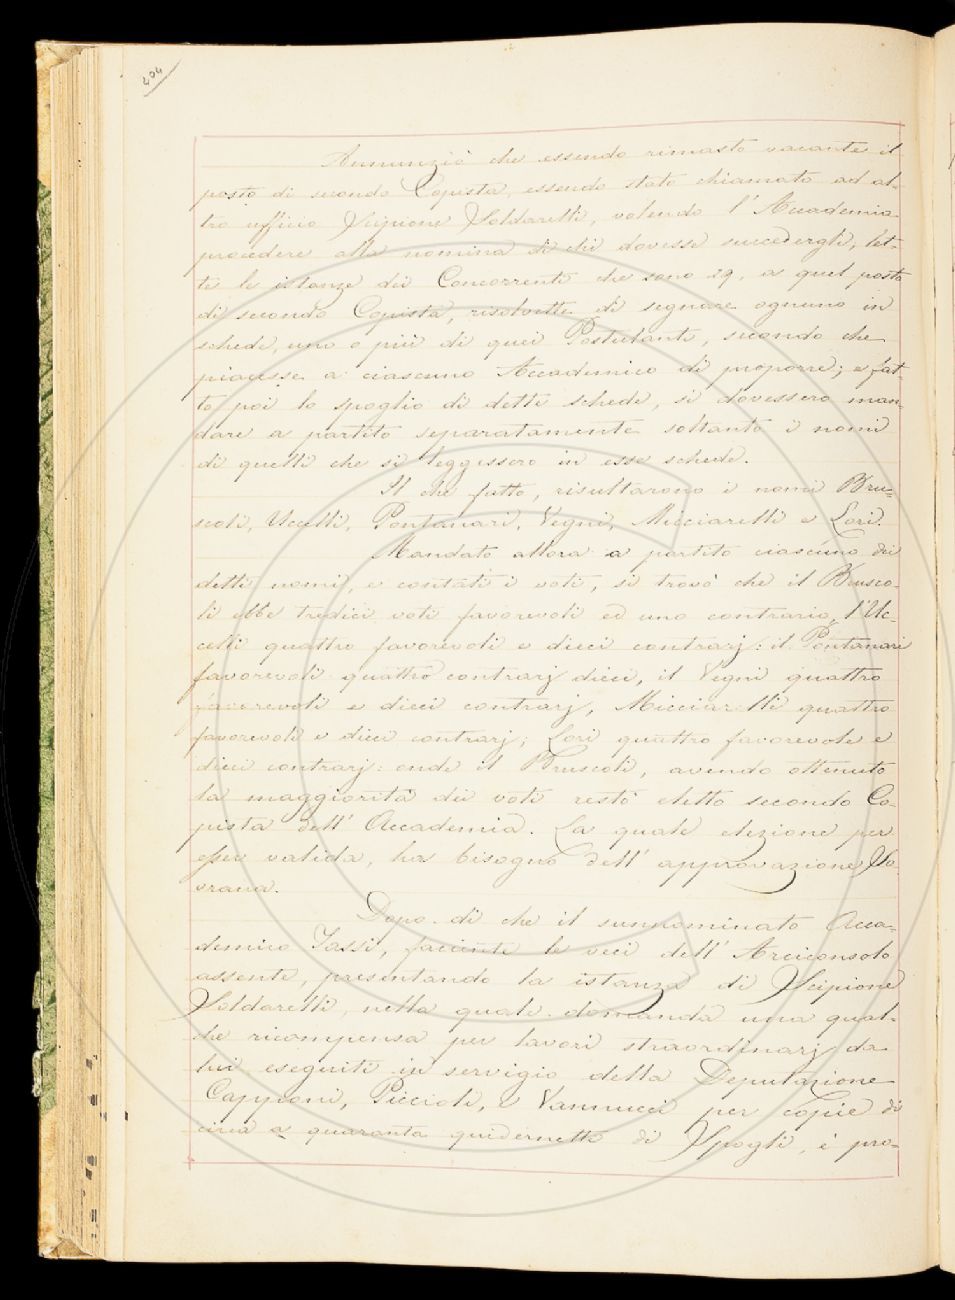 404
Annunziò che essendo rimasto vacante il
posto di secondo Copista, essendo stato chiamato ad al-
tro uffizio Scipione Soldarelli, volendo l'Accademia
procedere alla nomina di chi dovesse succedergli, let-
te le istanze dei Concorrenti che sono 29, a quel posto
di secondo Copista, risolvette di segnare ognuno in
schede, uno o più di quei Postulanti, secondo che
piacesse a ciascuno Accademico di proporre; e fat-
to poi lo spoglio di dette schede, si dovessero man-
dare a partito separatamente soltanto i nomi
di quelli che si leggessero in esse schede.
Il che fatto, risultarono i nomi Bru-
scoli, Uccelli, Pontanari, Vegni, Micciarelli e Lori.
Mandato allora a partito ciascuno dei
detti nomi, e contati i voti, si trovò che il Brusco-
li ebbe tredici voti favorevoli ed uno contrario, l'Uc-
celli quattro favorevoli e dieci contrarj: il Pontanari
favorevoli quattro contrarj dieci, il Vegni quattro
favorevoli e dieci contrarj, Micciarelli quattro
favorevoli e dieci contrarj; Lori quattro favorevole e
dieci contrarj: onde il Bruscoli, avendo ottenuto
la maggiorità dei voti restò eletto secondo Co-
pista dell'Accademia. La quale elezione per
esser valida, ha bisogno dell'approvazione So-
vrana.
Dopo di che il sunnominato Acca-
demico Tassi, faciente le veci dell'Arciconsolo
assente, presentando la istanza di Scipione
Soldarelli, nella quale domanda una qual-
che ricompensa per lavori straordinarj da
lui eseguiti in servigio della Deputazione
Capponi, Piccioli, e Vannucci per copie di
circa a quaranta quidernetti di Spogli, è pro-